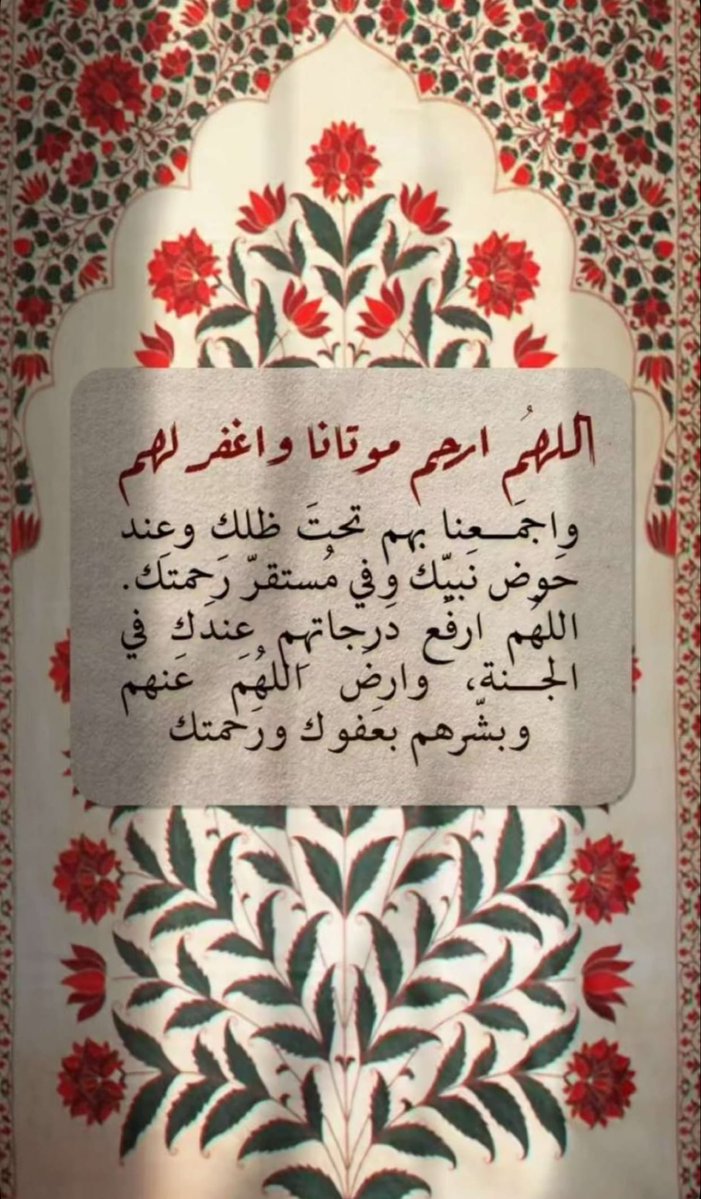 اللهُم ارحم موتانا واغفر لهم
واجمَـعنا بهم تحتَ ظلك وعند
حَوض نَبيّك وفي مُستقرّ رَحمتك.
اللهُم ارفَع دَرجاتهِم عِندَك في
الجـنة، وارضَ اللهُمَ عَنهم
وبشّرهم بعَفوك ورَحمتك